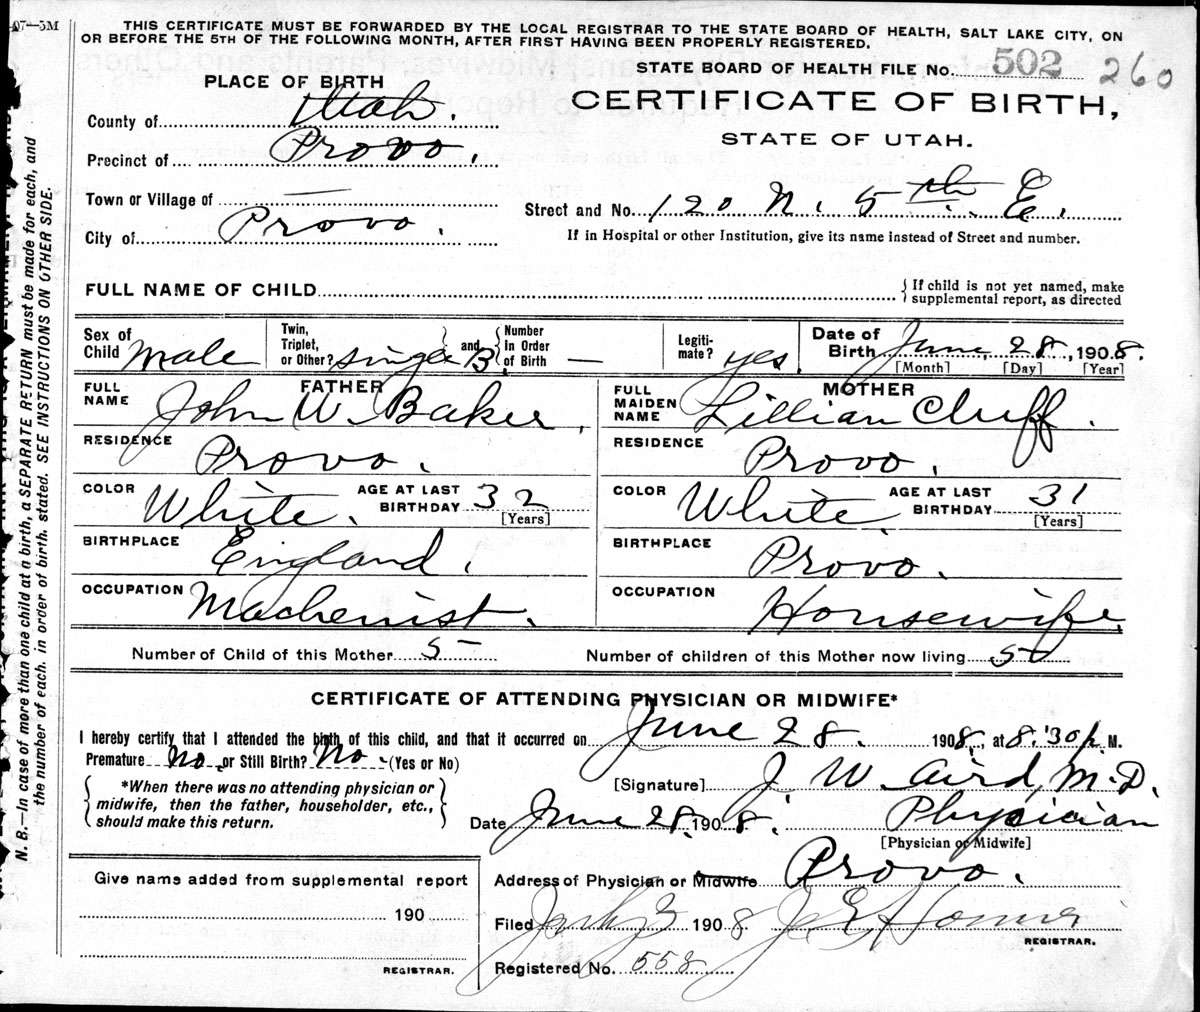 07—5M
THIS CERTIFICATE MUST BE FORWARDED BY THE LOCAL REGISTRAR TO THE STATE BOARD OF HEALTH, SALT LAKE CITY, ON
OR BEFORE THE 5TH OF THE FOLLOWING MONTH, AFTER FIRST HAVING BEEN PROPERLY REGISTERED.
STATE BOARD OF HEALTH FILE No. 502 260
PLACE OF BIRTH
CERTIFICATE OF BIRTH,
STATE OF UTAH.
County of Utah.
Precinct of Provo.
Town or Village of —
Street and No. 120 N. 5th. E.
City of Provo.
If in Hospital or other Institution, give its name instead of Street and number.
FULL NAME OF CHILD
If child is not yet named, make
supplemental report, as directed
Sex of Child Male
Twin, Triplet, or Other? single and B Number In Order of Birth —
Legitimate? yes
Date of Birth June 28, 1908.
[Month] [Day] [Year]
FATHER
FULL NAME John W. Baker.
MOTHER
FULL MAIDEN NAME Lillian Cluff.
RESIDENCE Provo.
RESIDENCE Provo.
COLOR White. AGE AT LAST BIRTHDAY 32 [Years]
COLOR White. AGE AT LAST BIRTHDAY 31 [Years]
BIRTHPLACE England.
BIRTHPLACE Provo.
OCCUPATION Machenist.
OCCUPATION Housewife.
Number of Child of this Mother 5
Number of children of this Mother now living 5
CERTIFICATE OF ATTENDING PHYSICIAN OR MIDWIFE*
I hereby certify that I attended the birth of this child, and that it occurred on June 28. 1908., at 8:30 p. M.
Premature No. or Still Birth? No. (Yes or No)
*When there was no attending physician or
midwife, then the father, householder, etc.,
should make this return.
[Signature] J. W. Aird, M.D.
Date June 28. 1908. Physician
[Physician or Midwife]
Address of Physician or Midwife Provo.
Give name added from supplemental report
190
REGISTRAR.
Filed July 3 1908 J. E. Homer
REGISTRAR.
Registered No. 558
N. B.—In case of more than one child at a birth, a SEPARATE RETURN must be made for each, and
the number of each, in order of birth, stated. SEE INSTRUCTIONS ON OTHER SIDE.